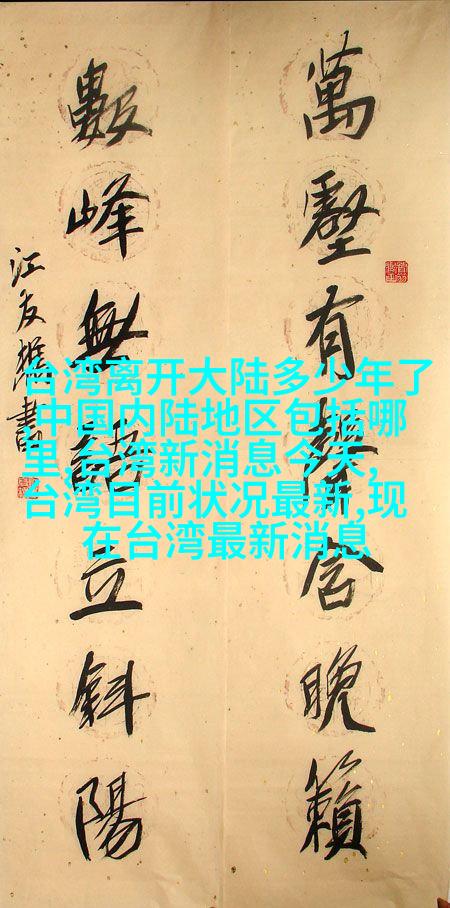 萬壑有聲含晚籟
數峰無語立斜陽
江友樵書
台湾离开大陆多少年了
中国内陆地区包括哪
里,台湾新消息今天,
台湾目前状况最新,现
在台湾最新消息